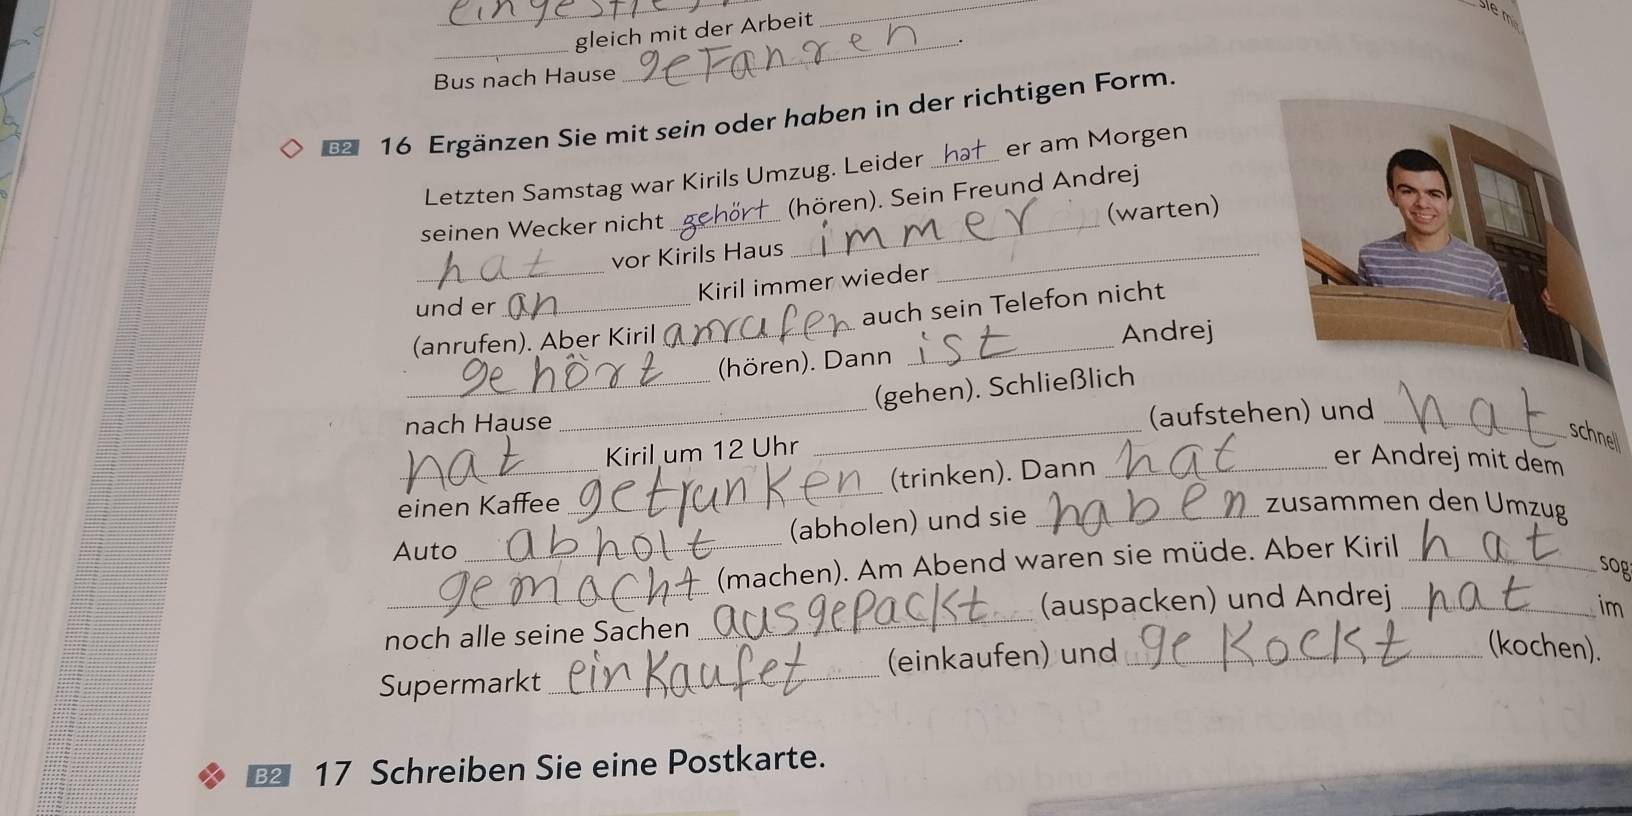 eingestie
gleich mit der Arbeit
Bus nach Hause gefahren.
B2 16 Ergänzen Sie mit sein oder haben in der richtigen Form.
Letzten Samstag war Kirils Umzug. Leider hat er am Morgen
seinen Wecker nicht gehört (hören). Sein Freund Andrej
hat vor Kirils Haus immer (warten)
und er an Kiril immer wieder
(anrufen). Aber Kiril anrufen auch sein Telefon nicht
gehört (hören). Dann ist Andrej
nach Hause (gehen). Schließlich
hat Kiril um 12 Uhr (aufstehen) und hat schnell
einen Kaffee getrunken (trinken). Dann hat er Andrej mit dem
Auto abholt (abholen) und sie haben zusammen den Umzug
gemacht (machen). Am Abend waren sie müde. Aber Kiril hat sog
noch alle seine Sachen ausgepackt (auspacken) und Andrej hat im
Supermarkt einkaufet (einkaufen) und gekockt (kochen).
B2 17 Schreiben Sie eine Postkarte.